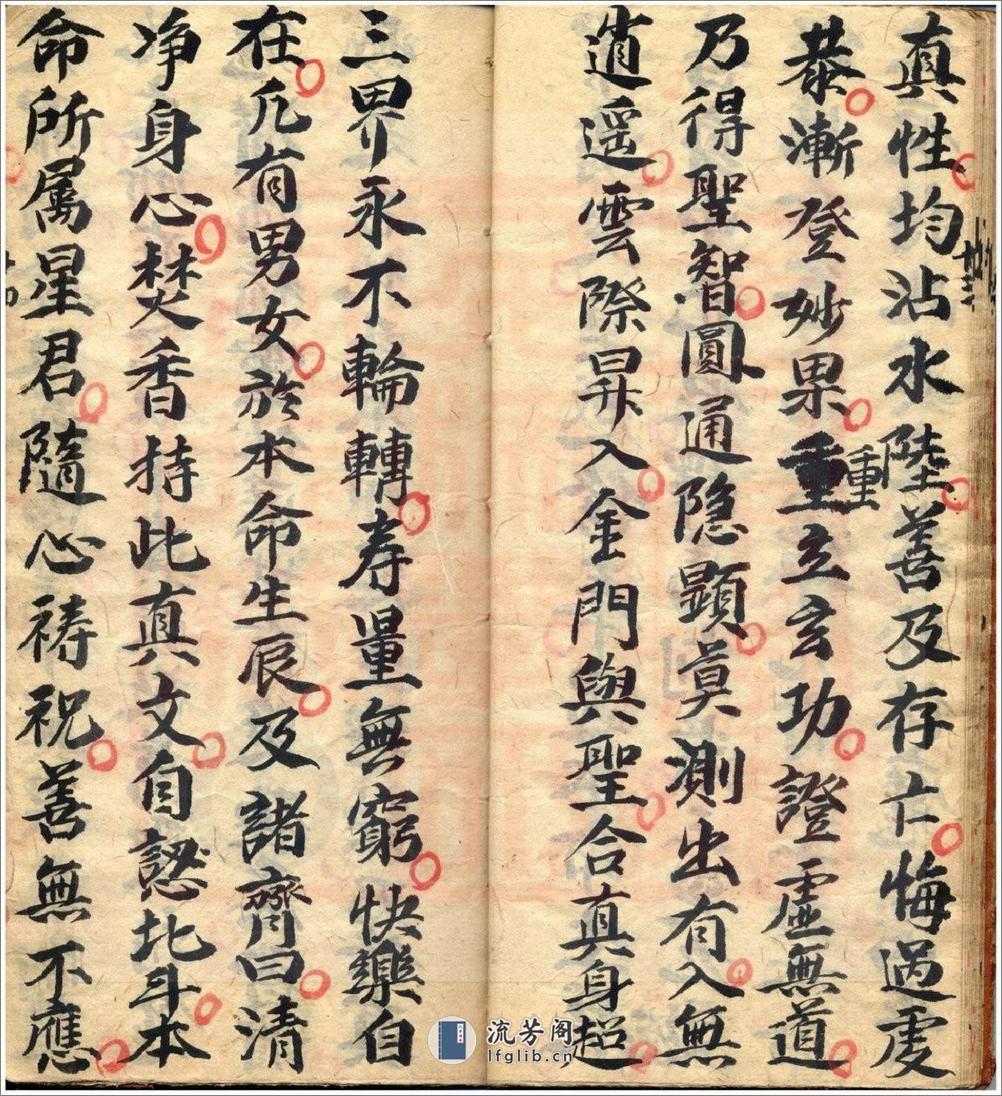 真性均沾水陸善及存亡悔過虔
恭漸登妙果重重立玄功證虛無道
乃得聖智圓通隐顯莫測出有入無
逍遥雲際昇入金門與聖合真身超
三界永不輪轉寿量無窮快樂自
在凢有男女於本命生辰及諸齋日清
净身心焚香持此真文自認北斗本
命所属星君隨心祷祝善無不應
流芳阁
lfglib.cn